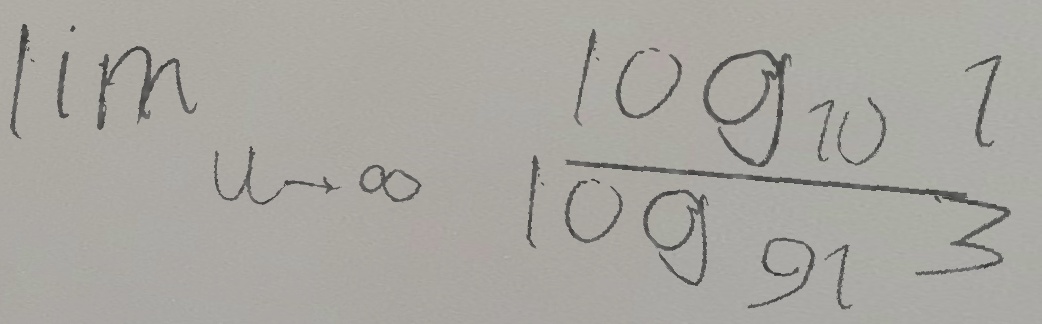 \lim_{u \to \infty} \frac{\log_{10} 1}{\log_{91} 3}